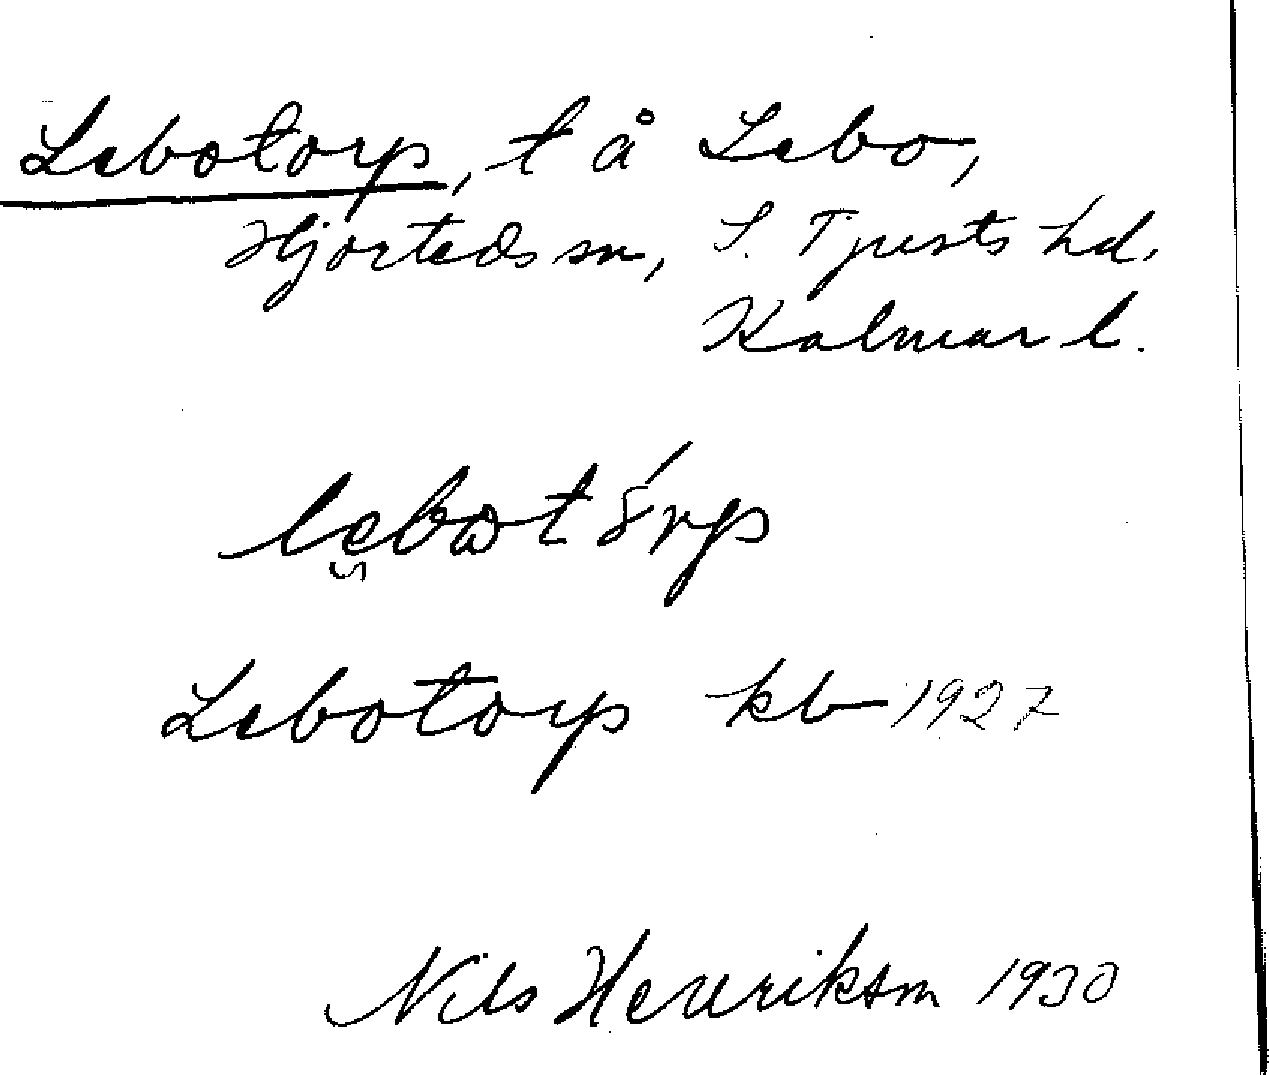 Lebotorp, t å Lebo,
Hjorteds sn, S. Tjusts hd.
Kalmar l.
Lebotorp kb 1927
Nils Henriksson 1930